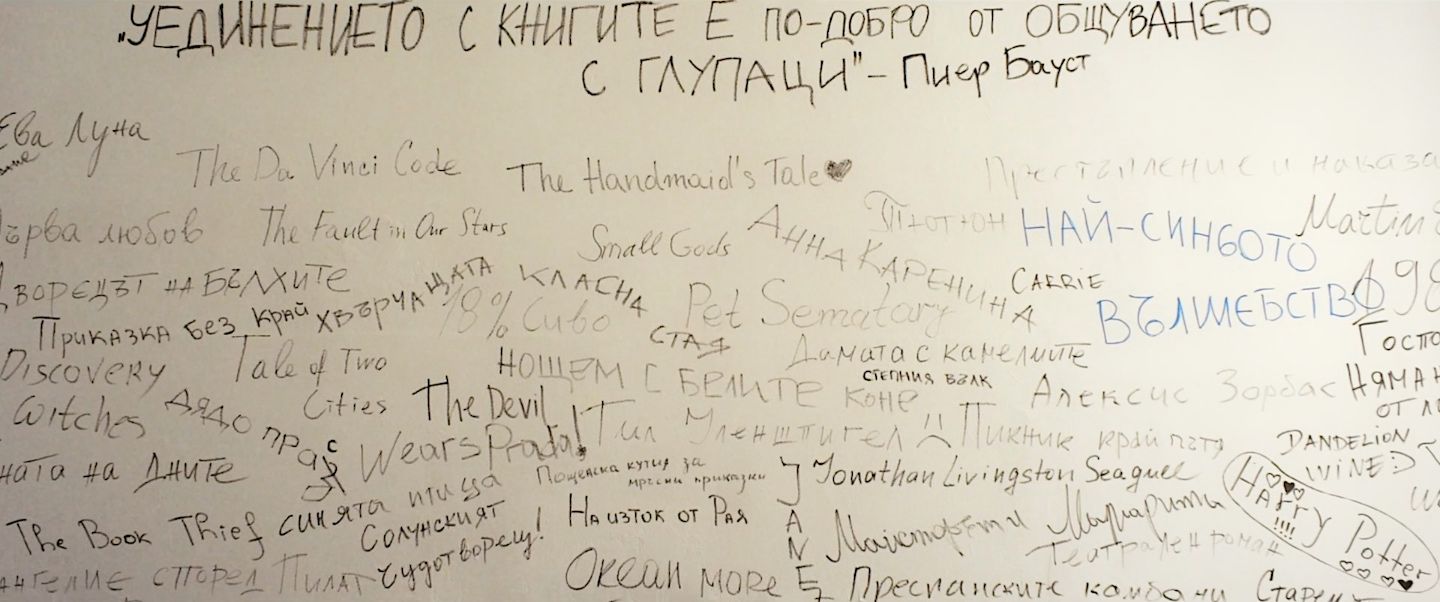 „УЕДИНЕНИЕТО С КНИГИТЕ Е ПО-ДОБРО ОТ ОБЩУВАНЕТО
С ГЛУПАЦИ" – Пиер Бауст
Ева Луна
The Da Vinci Code
The Handmaid's Tale
Престъпление и наказа
Първа любов
The Fault in Our Stars
Small Gods
АННА КАРЕНИНА
Тютюн
НАЙ-СИНЬОТО
ВЪЛШЕБСТВО
Martin
ДВОРЕЦЪТ НА БЪЛХИТЕ
ХВЪРЧАЩАТА
КЛАСНА
СТАЯ
CARRIE
198
Приказка без край
18% Сиво
Pet Sematary
Госпо
Discovery
Tale of Two
Cities
НОЩЕМ С БЕЛИТЕ КОНЕ
Дамата с камелиите
СТЕПНИЯ ВЪЛК
Алексис Зорбас
НЯМА
Witches
ДЯДО ПРАХ
The Devil
Wears Prada!
Тил Уленшпигел
Пикник край пътя
DANDELION
WINE :D
ната на дните
Пощенска кутия за
мръсни приказки
Jonathan Livingston Seagull
JANE
Harry Potter
!!!!
The Book Thief
синята птица
Солунският
чудотворец!
На изток от Рая
Майсторът и Маргарита
Театрален роман
ангелие според Пилат
Океан море
Преспанските камбани
Старец